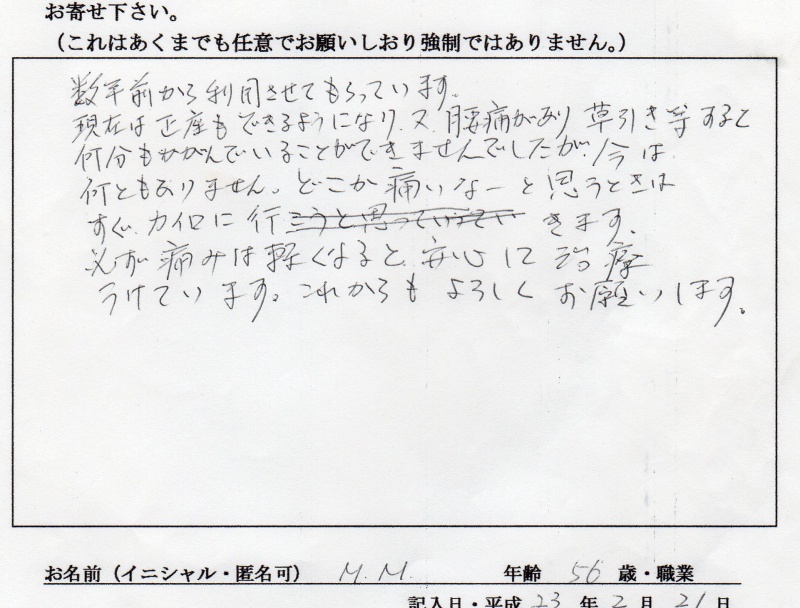 お寄せ下さい。
(これはあくまでも任意でお願いしおり強制ではありません。)
数年前から利用させてもらっています。
現在は正座もできるようになり、又、腰痛があり草引き等すると
何分もかがんでいることができませんでしたが、今は
何ともありません。どこか痛いなーと思うときは
すぐ、カイロに行きます。
必ず痛みは軽くなると、安心して治療
うけています。これからもよろしくお願いします。
お名前(イニシャル・匿名可) M.M. 年齢 56 歳・職業
記入日・平成 23 年 2 月 21 日